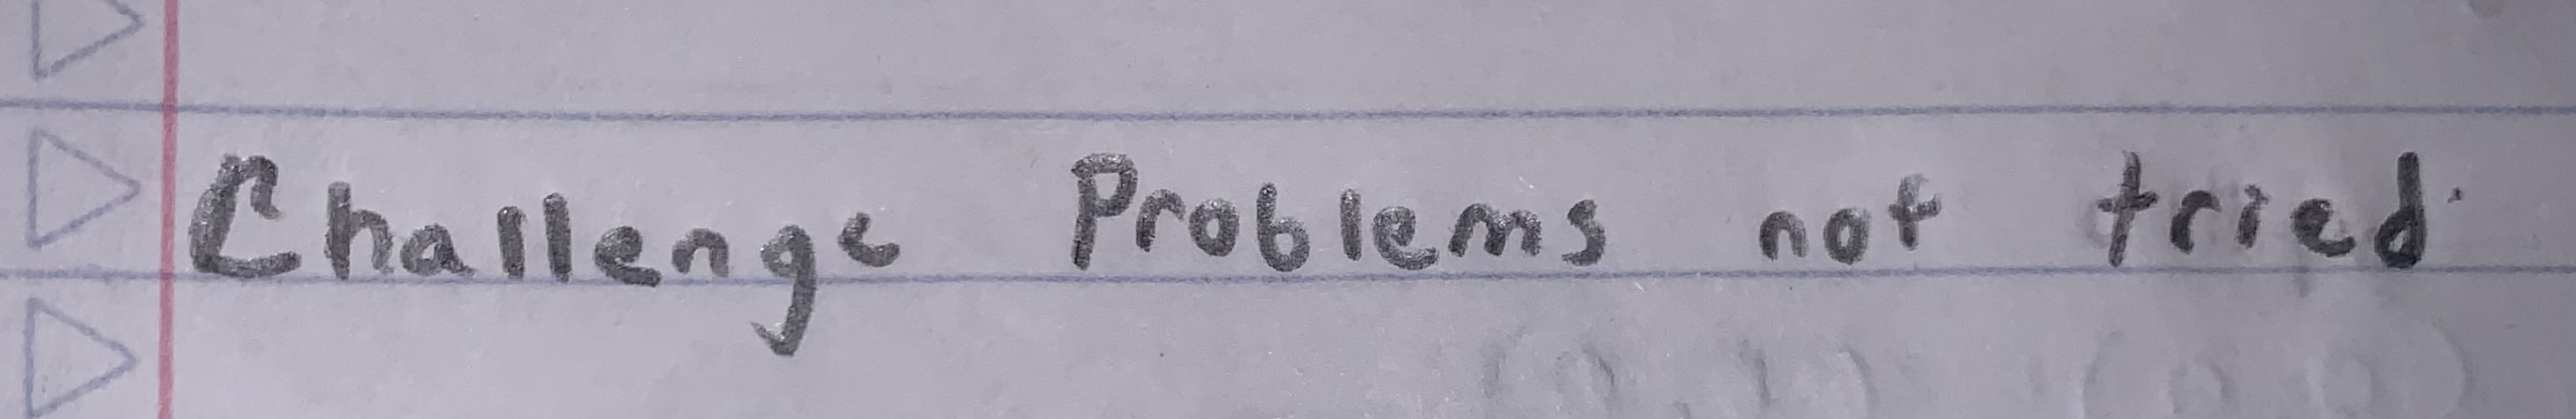 Challenge Problems not tried